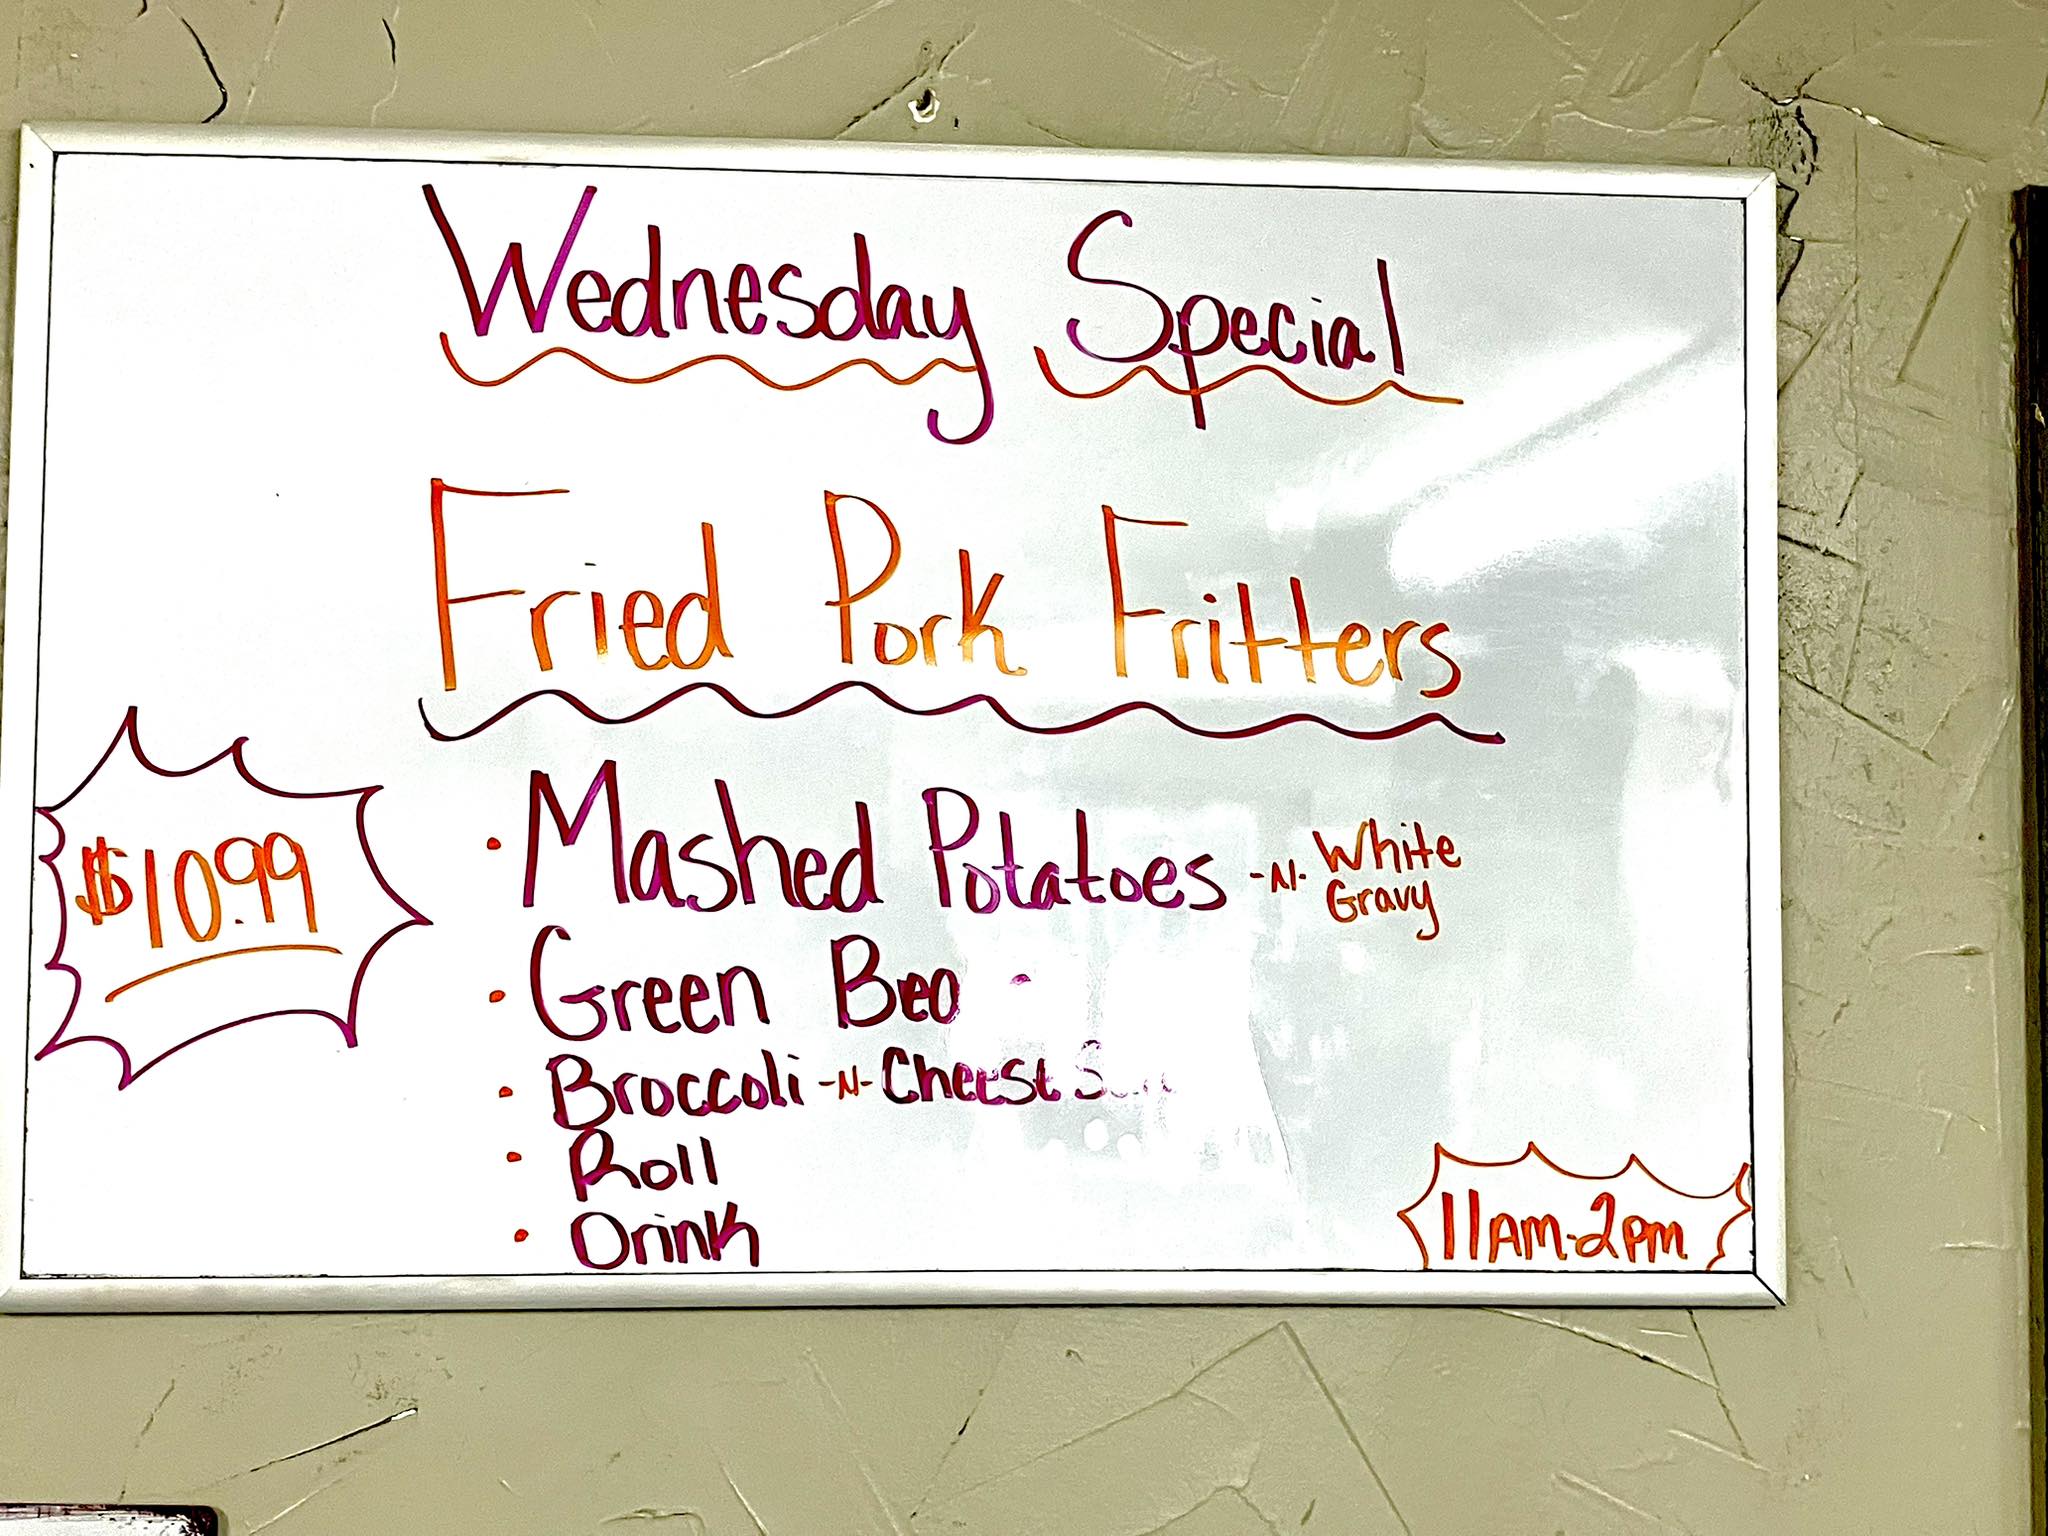 Wednesday Special
Fried Pork Fritters
$10.99
• Mashed Potatoes -N- White
Gravy
• Green
• Broccoli -N- Cheese
• Roll
• Drink
11AM-2PM